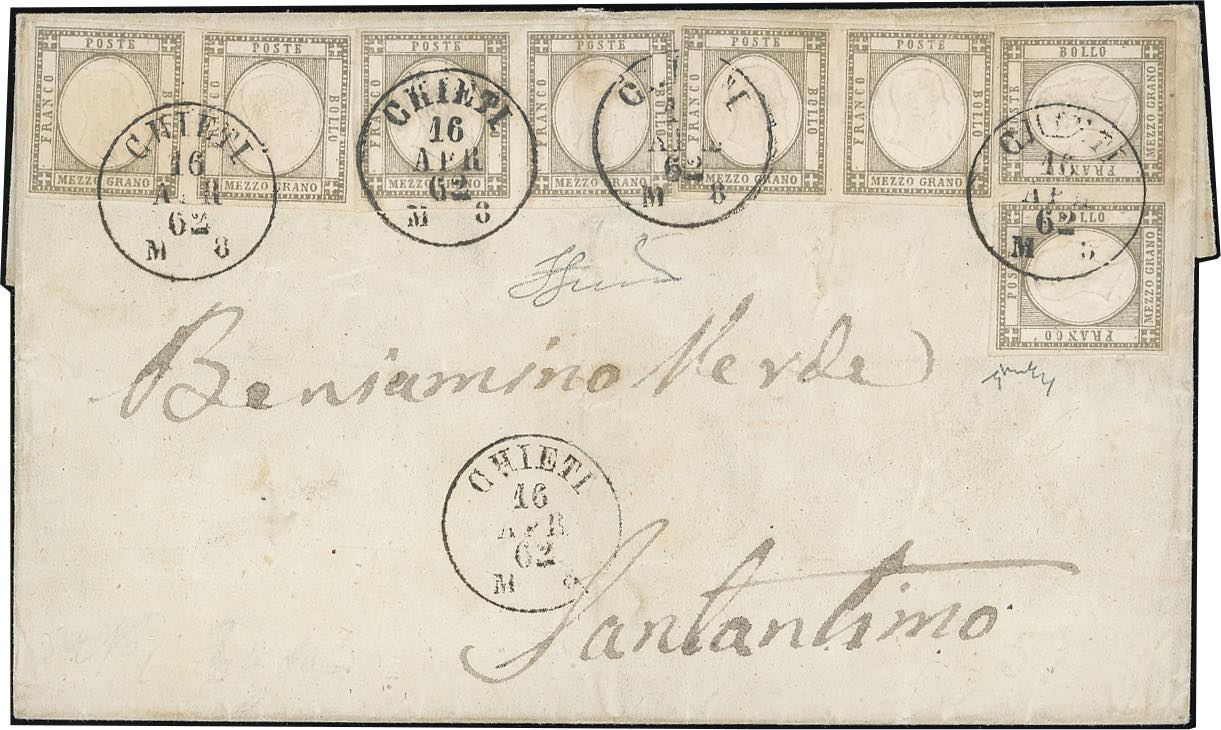 POSTE
FRANCO
BOLLO
MEZZO GRANO
POSTE
FRANCO
BOLLO
MEZZO GRANO
POSTE
FRANCO
BOLLO
MEZZO GRANO
POSTE
FRANCO
BOLLO
MEZZO GRANO
POSTE
FRANCO
BOLLO
MEZZO GRANO
POSTE
FRANCO
BOLLO
MEZZO GRANO
BOLLO
POSTE
MEZZO GRANO
FRANCO
BOLLO
POSTE
MEZZO GRANO
FRANCO
CHIETI
16
APR
62
M 8
CHIETI
16
APR
62
M 8
62
M 8
CHIETI
16
APR
62
M
Beniamino Verde
CHIETI
16
APR
62
M 8
Santantimo